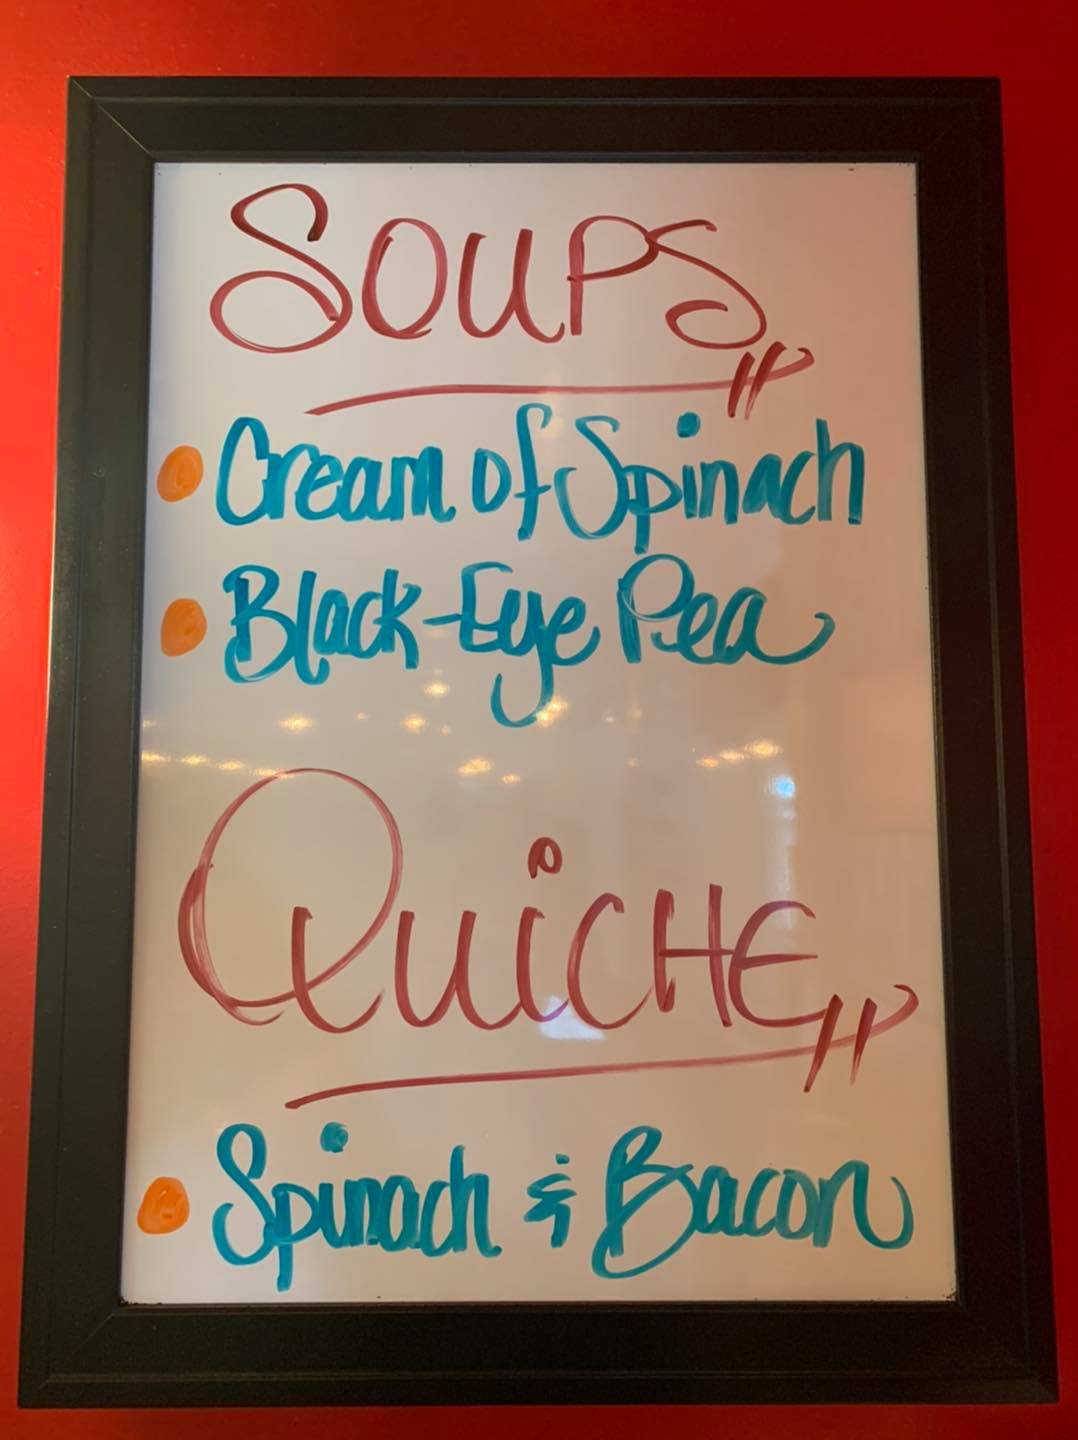 SOUPS
• Cream of Spinach
• Black-Eye Pea
QUiCHE
• Spinach & Bacon